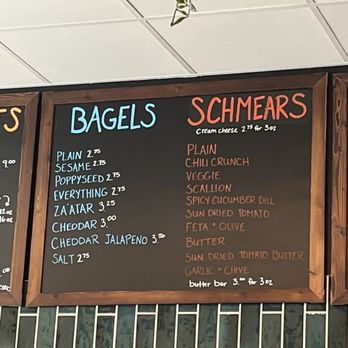 BAGELS
PLAIN 2.75
SESAME 2.75
POPPYSEED 2.75
EVERYTHING 2.75
ZA'ATAR 3.25
CHEDDAR 3.00
CHEDDAR JALAPENO 3.50
SALT 2.75
SCHMEARS
Cream cheese 2.75 for 3oz
PLAIN
CHILI CRUNCH
VEGGIE
SCALLION
SPICY CUCUMBER DILL
SUN DRIED TOMATO
FETA + OLIVE
BUTTER
SUN DRIED TOMATO BUTTER
GARLIC + CHIVE
butter bar 3.00 for 3 oz